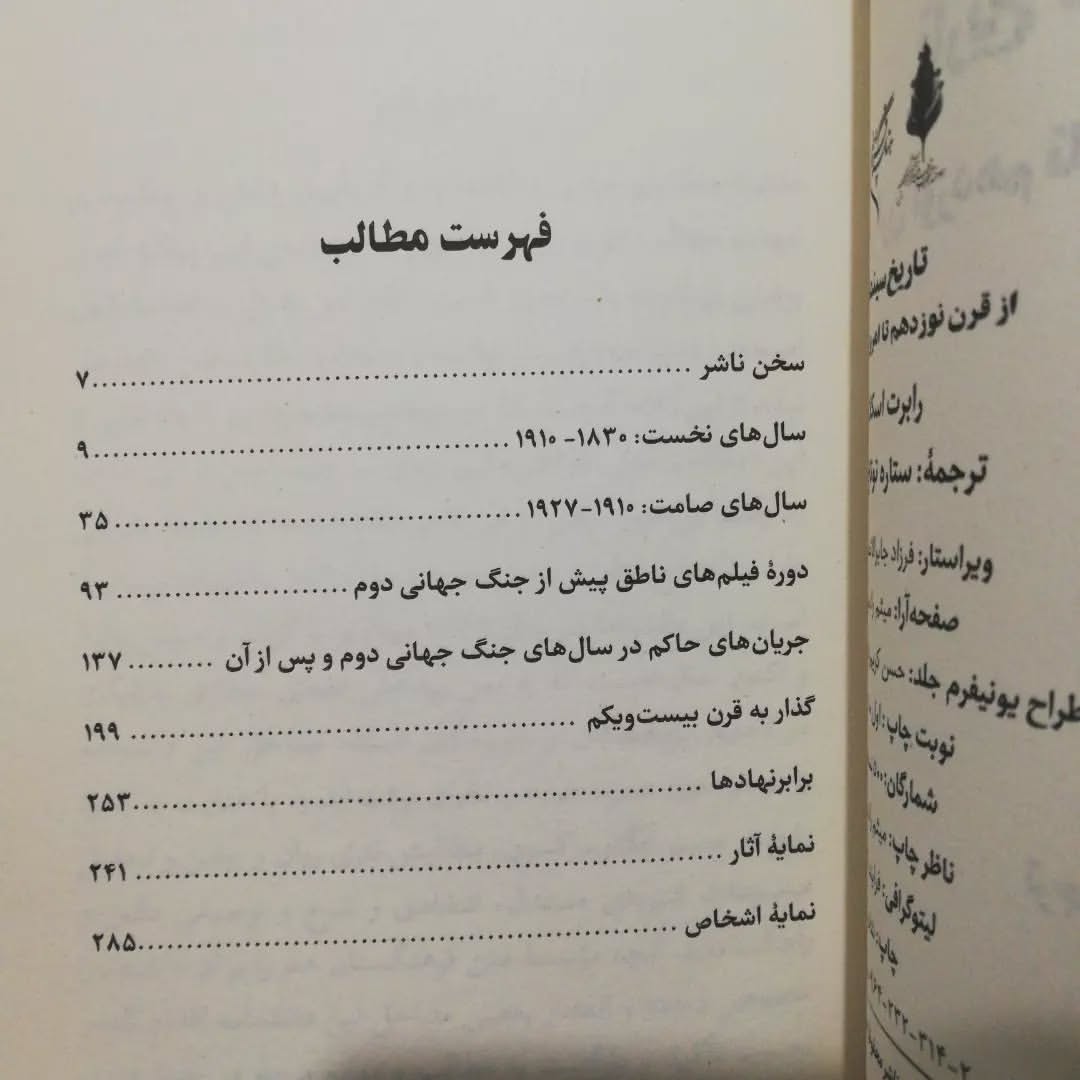 فهرست مطالب
سخن ناشر ........ ۷
سال‌های نخست: ۱۸۳۰- ۱۹۱۰ ........ ۹
سال‌های صامت: ۱۹۱۰-۱۹۲۷ ........ ۳۵
دورهٔ فیلم‌های ناطق پیش از جنگ جهانی دوم ........ ۹۳
جریان‌های حاکم در سال‌های جنگ جهانی دوم و پس از آن ........ ۱۳۷
گذار به قرن بیست‌ویکم ........ ۱۹۹
برابرنهادها ........ ۲۵۳
نمایهٔ آثار ........ ۲۴۱
نمایهٔ اشخاص ........ ۲۸۵
تاریخ
از قرن نوزدهم تا
رابرت
ترجمهٔ: ستاره
ویراستار: فرزاد
صفحه‌آرا: میثم
طراح یونیفرم جلد: حسن
نوبت چاپ: اول
شمارگان:
ناظر چاپ: میثم
لیتوگرافی:
چاپ:
۲۳۲-۳۱۴-۲